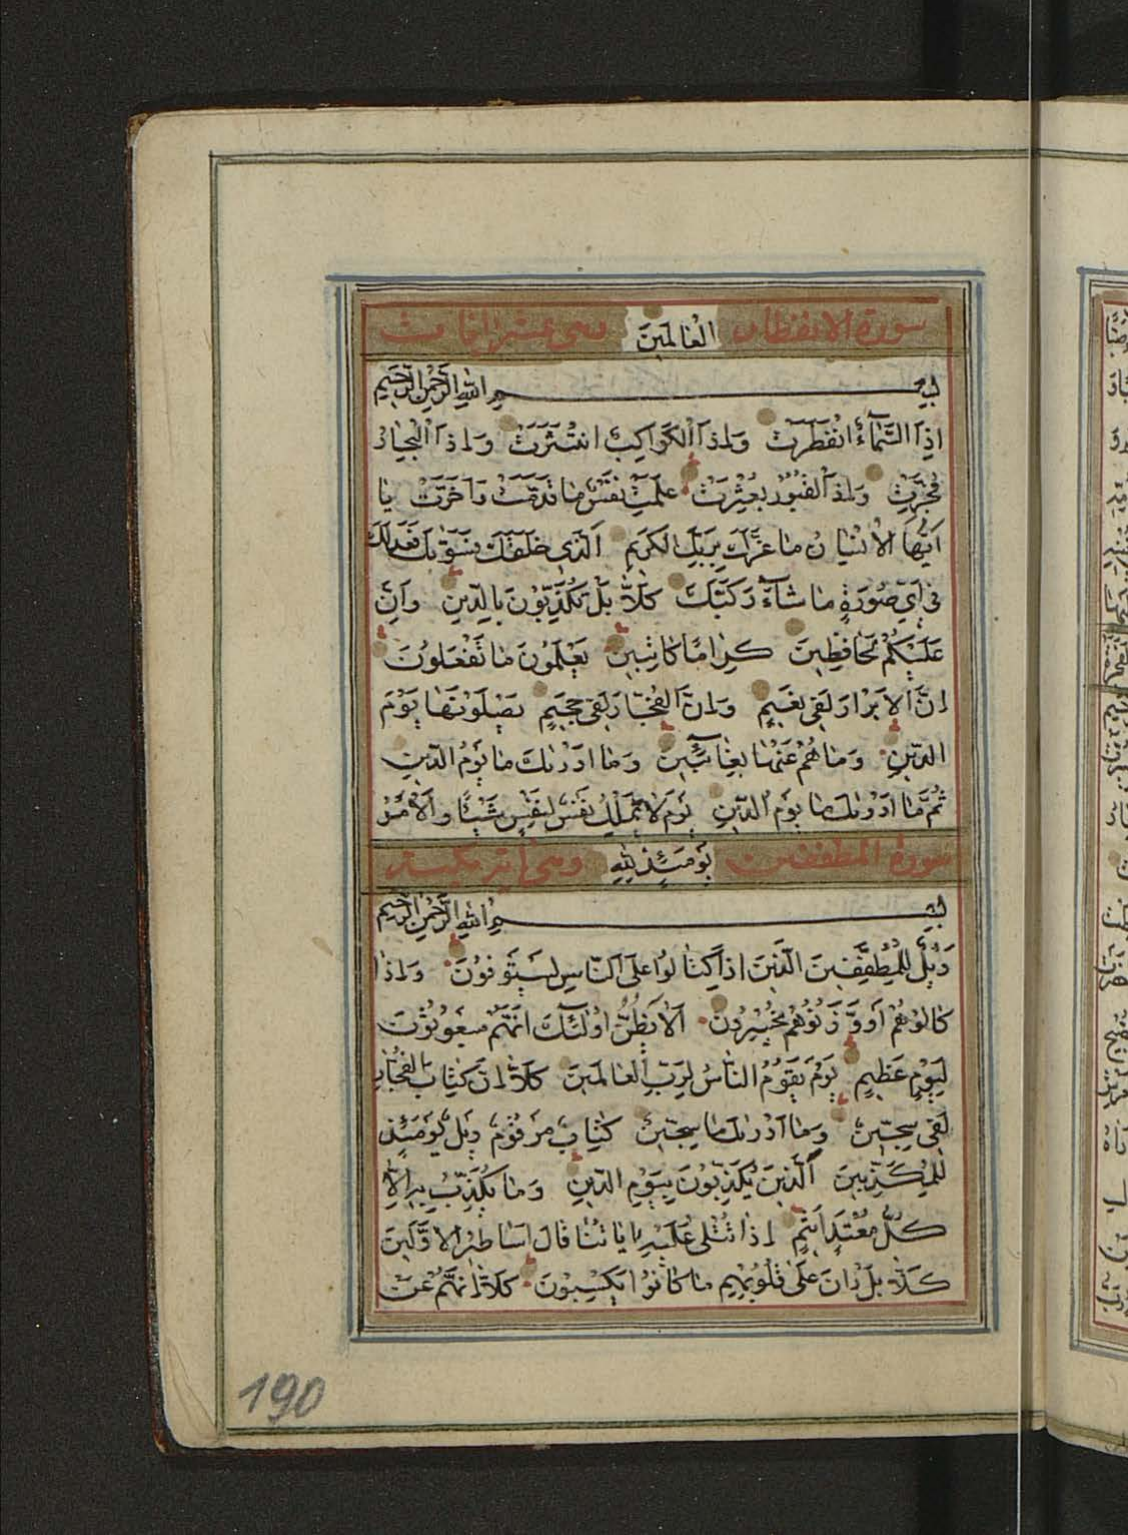 سورة الانفطار العالمين وهى عشر ايات
بسم الله الرحمن الرحيم
اِذَا السَّمٰٓاءُ انْفَطَرَتْ وَاِذَا الْكَوٰاكِبُ انْتَثَرَتْ وَاِذَا الْبِحٰارُ
فُجِّرَتْ وَاِذَا الْقُبُورُ بُعْثِرَتْ عَلِمَتْ نَفْسٌ مٰا قَدَّمَتْ وَاَخَّرَتْ يٰا
اَيُّهَا الْاِنْسٰانُ مٰا غَرَّكَ بِرَبِّكَ الْكَرِيمِ اَلَّذِى خَلَقَكَ فَسَوّٰيكَ فَعَدَلَكَ
فِى اَىِّ صُورَةٍ مٰا شٰٓاءَ رَكَّبَكَ كَلّٰا بَلْ تُكَذِّبُونَ بِالدِّينِ وَاِنَّ
عَلَيْكُمْ لَحٰافِظِينَ كِرٰامًا كٰاتِبِينَ يَعْلَمُونَ مٰا تَفْعَلُونَ
اِنَّ الْاَبْرٰارَ لَفِى نَعِيمٍ وَاِنَّ الْفُجّٰارَ لَفِى جَحِيمٍ يَصْلَوْنَهٰا يَوْمَ
الدِّينِ وَمٰا هُمْ عَنْهٰا بِغٰٓائِبِينَ وَمٰا اَدْرٰىكَ مٰا يَوْمُ الدِّينِ
ثُمَّ مٰا اَدْرٰىكَ مٰا يَوْمُ الدِّينِ يَوْمَ لٰا تَمْلِكُ نَفْسٌ لِنَفْسٍ شَيْئًا وَالْاَمْرُ
سورة المطففين يَوْمَئِذٍ لِلّٰهِ وهى
بسم الله الرحمن الرحيم
وَيْلٌ لِلْمُطَفِّفِينَ الَّذِينَ اِذَا اكْتٰالُوا عَلَى النّٰاسِ يَسْتَوْفُونَ وَاِذٰا
كٰالُوهُمْ اَوْ وَزَنُوهُمْ يُخْسِرُونَ اَلٰا يَظُنُّ اُولٰٓئِكَ اَنَّهُمْ مَبْعُوثُونَ
لِيَوْمٍ عَظِيمٍ يَوْمَ يَقُومُ النّٰاسُ لِرَبِّ الْعٰالَمِينَ كَلّٰا اِنَّ كِتٰابَ الْفُجّٰارِ
لَفِى سِجِّينٍ وَمٰا اَدْرٰىكَ مٰا سِجِّينٌ كِتٰابٌ مَرْقُومٌ وَيْلٌ يَوْمَئِذٍ
لِلْمُكَذِّبِينَ اَلَّذِينَ يُكَذِّبُونَ بِيَوْمِ الدِّينِ وَمٰا يُكَذِّبُ بِهِ اِلّٰا
كُلُّ مُعْتَدٍ اَثِيمٍ اِذٰا تُتْلٰى عَلَيْهِ اٰيٰاتُنٰا قٰالَ اَسٰاطِيرُ الْاَوَّلِينَ
كَلّٰا بَلْ رٰانَ عَلٰى قُلُوبِهِمْ مٰا كٰانُوا يَكْسِبُونَ كَلّٰا اِنَّهُمْ عَنْ
190